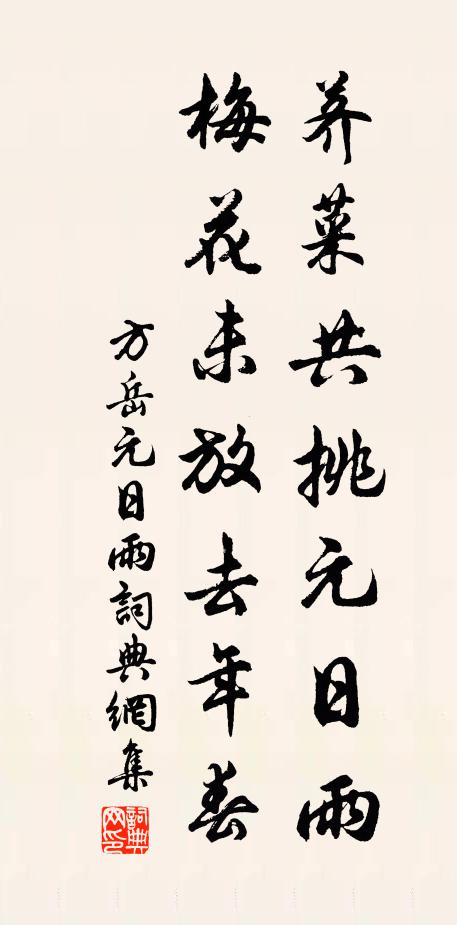 荠菜共挑元日雨
梅花未放去年春
方岳元日雨詞典網集
詞典網印